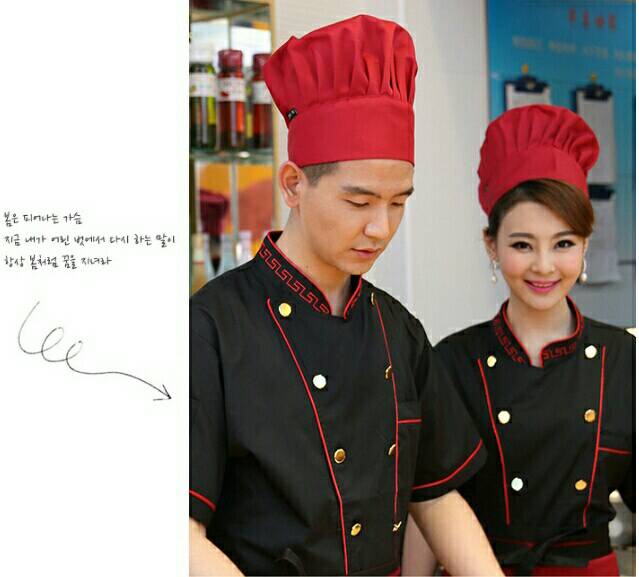 봄은 피어나는 가슴
지금 내가 어린 벗에서 다시 하는 말이
항상 봄처럼 꿈을 지녀라